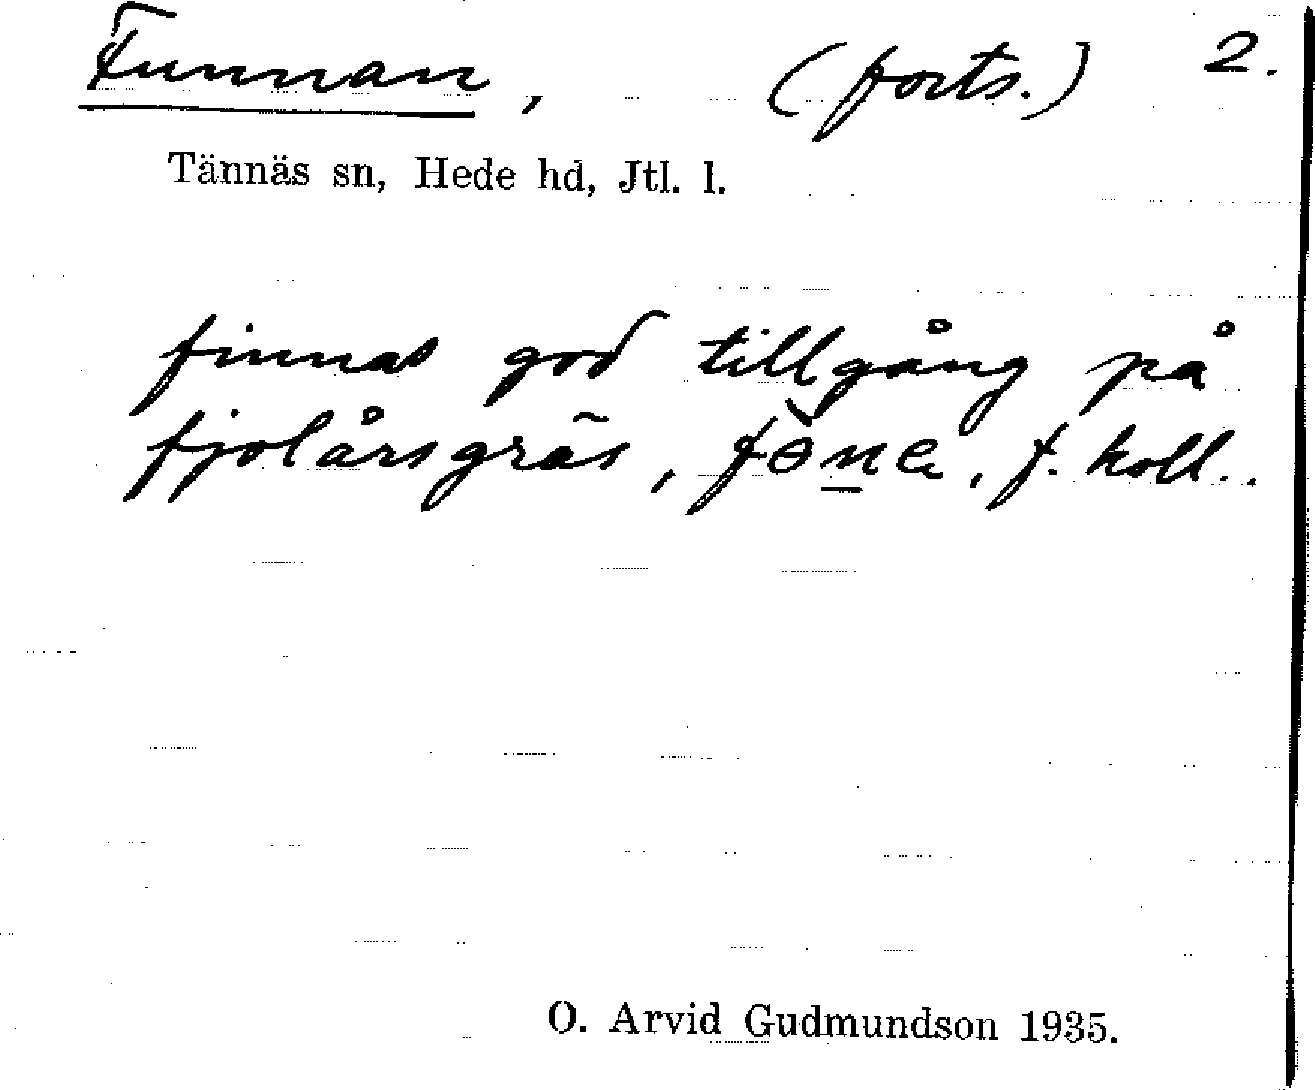 Funnan, (forts.) 2.
Tännäs sn, Hede hd, Jtl. l.
finnas god tillgång på
fjolårsgräs, f. koll..
O. Arvid Gudmundson 1935.